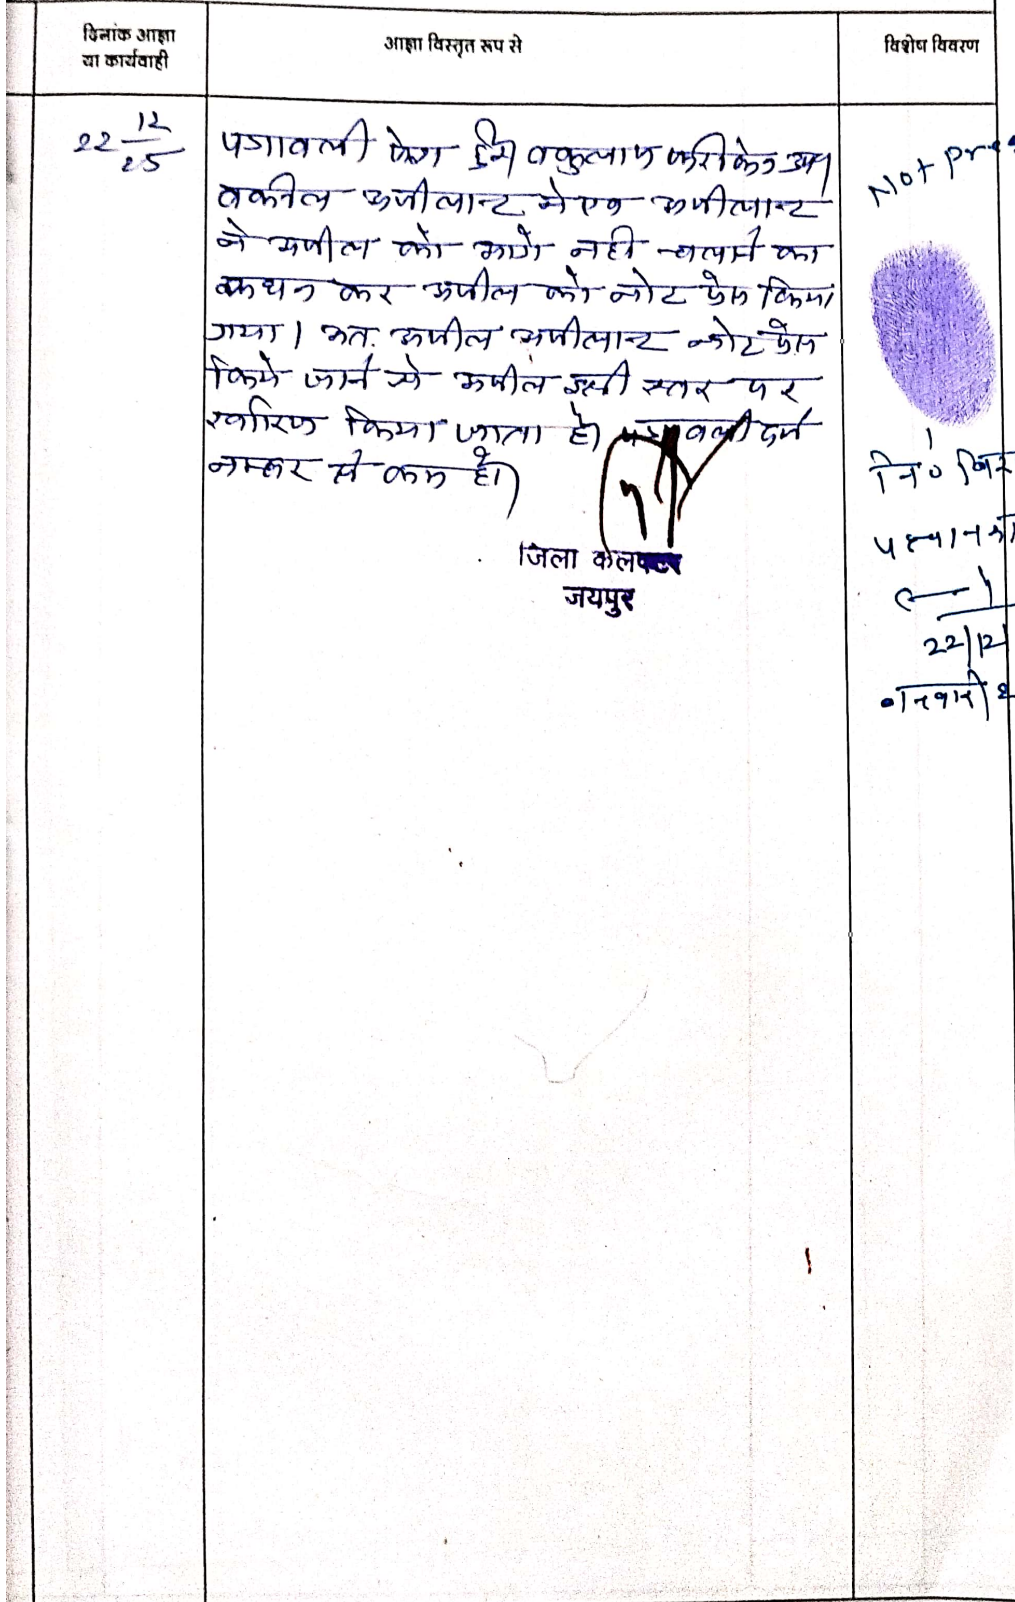 दिनांक आज्ञा
या कार्यवाही
आज्ञा विस्तृत रूप से
विशेष विवरण
22 12/25
पत्रावली पेश हुई। वकुलाय फरीकेन उप।
वकील अपीलान्ट ने एवं अपीलान्ट
ने अपील को आगे नहीं चलाने का
कथन कर अपील को नोट प्रेस किया
गया। अतः अपील अपीलान्ट नोट प्रेस
किये जाने से अपील इसी स्तर पर
खारिज किया जाता है। पत्रावली दर्ज
नम्बर से कम हो।
जिला कलक्टर
जयपुर
Not
नि०
22/12